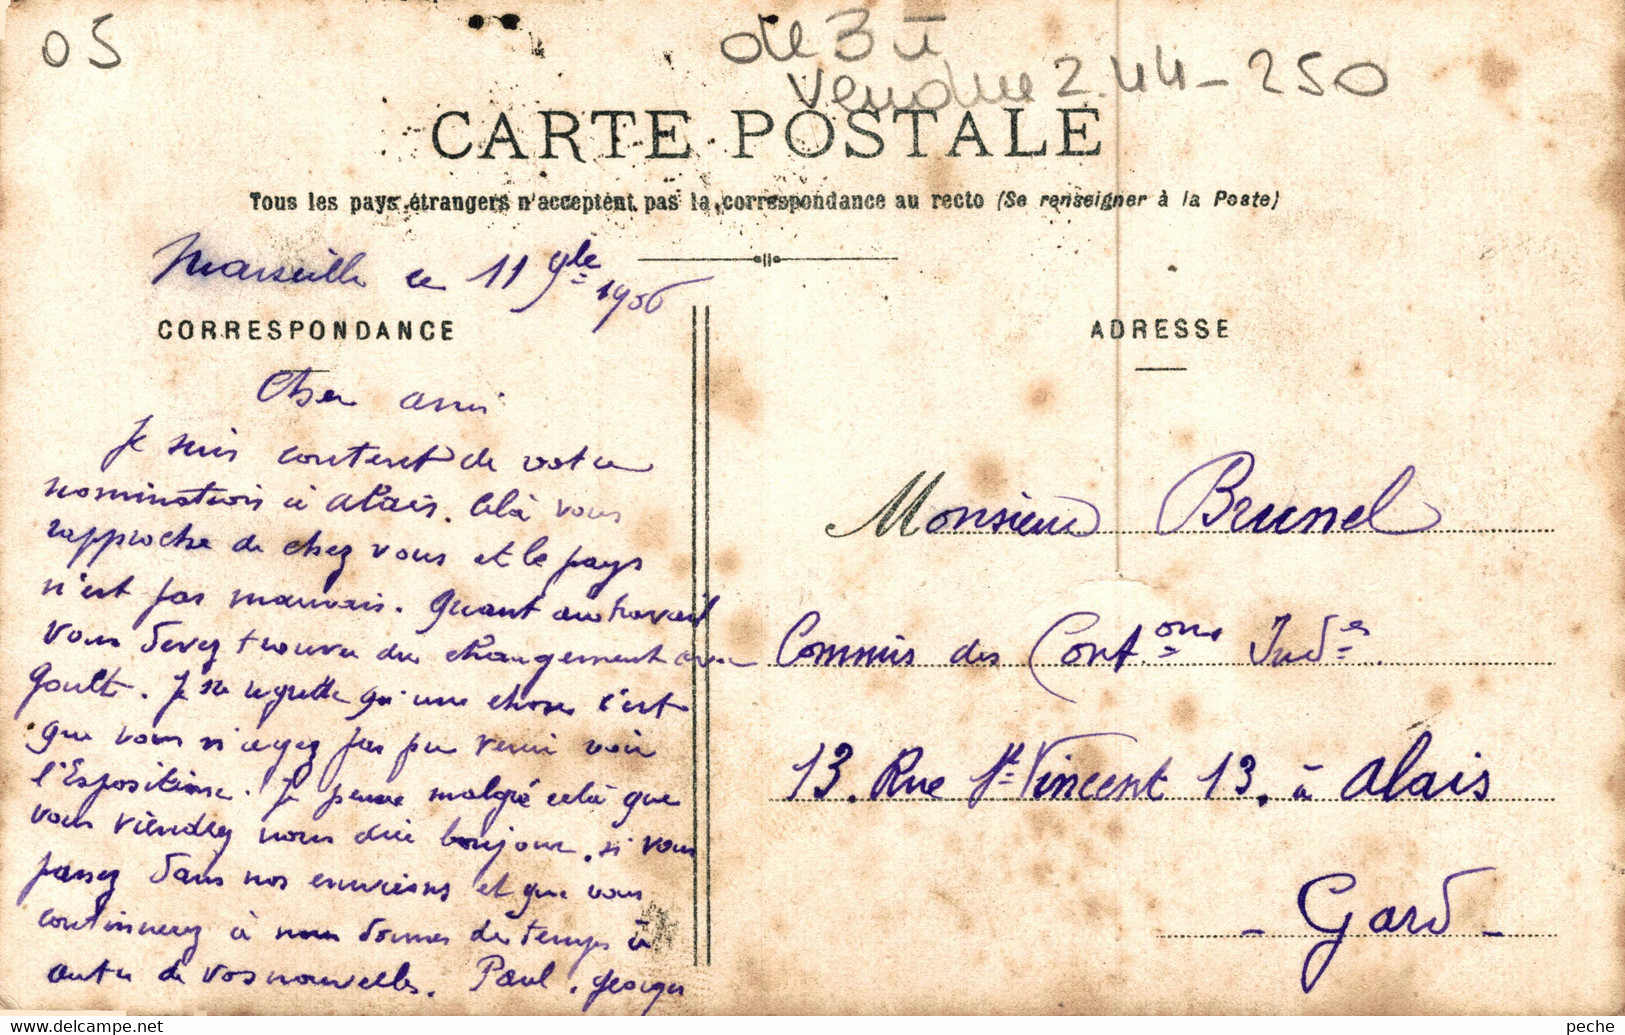 05
Vendue 2.44 - 250
CARTE POSTALE
Tous les pays étrangers n'acceptent pas la correspondance au recto (Se renseigner à la Poste)
Marseille le 11 9bre 1906
CORRESPONDANCE
Cher ami
Je suis content de votre
nomination à Alais. Celà vous
rapproche de chez vous et le pays
n'est pas mauvais. Quant au travail
vous devez trouver du changement avec
Goult. Je ne regrette qu'une chose c'est
que vous n'ayez pas pu venir voir
l'Exposition. Je pense malgré celà que
vous viendrez nous dire bonjour, si vous
passez dans nos environs et que vous
continuerez à nous donner de temps à
autre de vos nouvelles. Paul. Georges
ADRESSE
Monsieur Brunel
Commis des Cont.ons Ind.es
13. Rue St Vincent 13. à Alais
- Gard -
peche